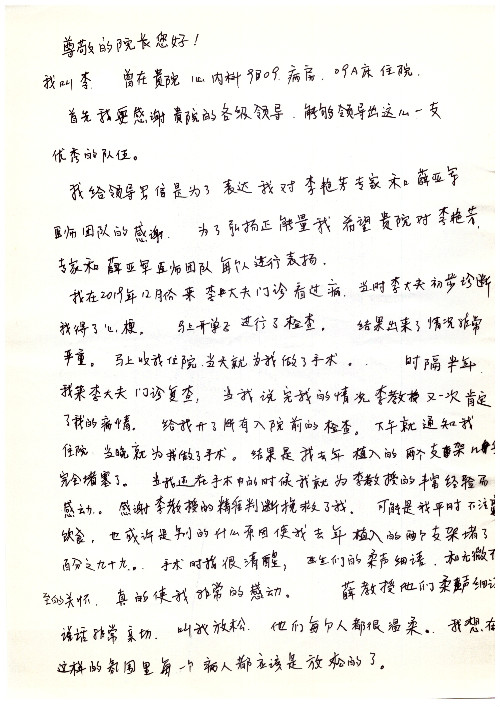 尊敬的院长您好！
我叫李 曾在贵院心内科9B09病房.09A床住院.
首先我要感谢贵院的各级领导.能够领导出这么一支
优秀的队伍。
我给领导写信是为了表达我对李艳芳专家和薛亚军
医师团队的感谢. 为了弘扬正能量我希望贵院对李艳芳.
专家和薛亚军医师团队每个人进行表扬.
我在2019年12月份来李大夫门诊看过病.当时李大夫初步诊断
我得了心梗。 马上开单子进行了检查。 结果出来了情况非常
严重。马上收我住院当天就为我做了手术。. 时隔半年.
我来李大夫门诊复查, 当我说完我的情况李教授又一次肯定
了我的病情. 给我开了所有入院前的检查。下午就通知我
住院.当晚就为我做了手术。结果是我去年植入的两个支架
完全堵塞了。当我还在手术中的时候我就为李教授的丰富经验而
感动。感谢李教授的精准判断挽救了我. 可能是我平时不注意
饮食, 也或许是别的什么原因使我去年植入的两个支架堵了
百分之九十九。. 手术时我很清醒, 医生们的柔声细语.和无微不
至的关怀. 真的使我非常的感动。 薛教授他们柔声细语
说话非常亲切. 叫我放松. 他们每个人都很温柔。.我想在
这样的氛围里每一个病人都应该是放松的了。